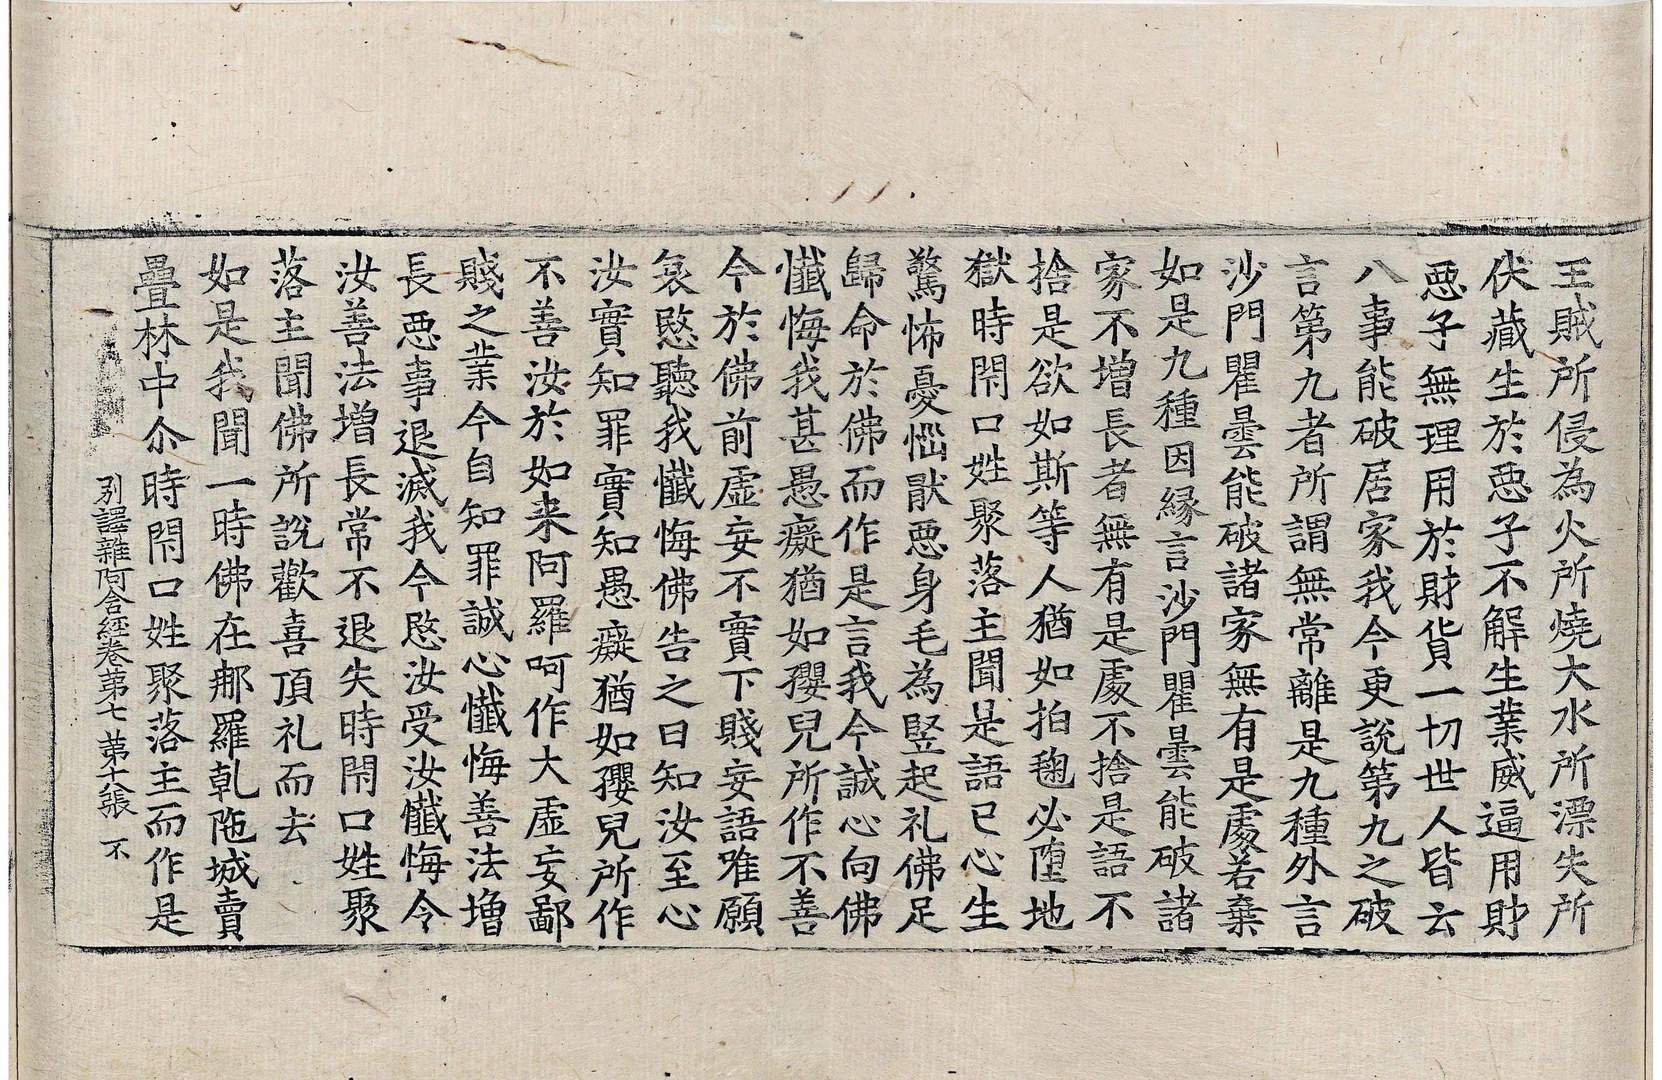 王賊所侵為火所燒大水所漂失所
伏藏生於恶子不解生業威逼用財
恶子無理用於財貨一切世人皆云
八事能破居家我今更說第九之破
言第九者所謂無常離是九種外言
沙門瞿曇能破諸家無有是處若棄
如是九種因緣言沙門瞿曇能破諸
家不增長者無有是處不捨是語不
捨是欲如斯等人猶如拍毱必墮地
獄時閇口姓聚落主聞是語已心生
驚怖憂惱猒恶身毛為竪起礼佛足
歸命於佛而作是言我今誠心向佛
懺悔我甚愚癡猶如孾兒所作不善
今於佛前虛妄不實下賤妄語唯願
哀愍聽我懺悔佛告之曰知汝至心
汝實知罪實知愚癡猶如孾兒所作
不善汝於如来阿羅呵作大虛妄鄙
賤之業今自知罪誠心懺悔善法增
長恶事退滅我今愍汝受汝懺悔令
汝善法增長常不退失時閇口姓聚
落主聞佛所說歡喜頂礼而去
如是我聞一時佛在那羅乹陁城賣
疊林中尒時閇口姓聚落主而作是
别譯雜阿含經卷苐七 苐十八張 不